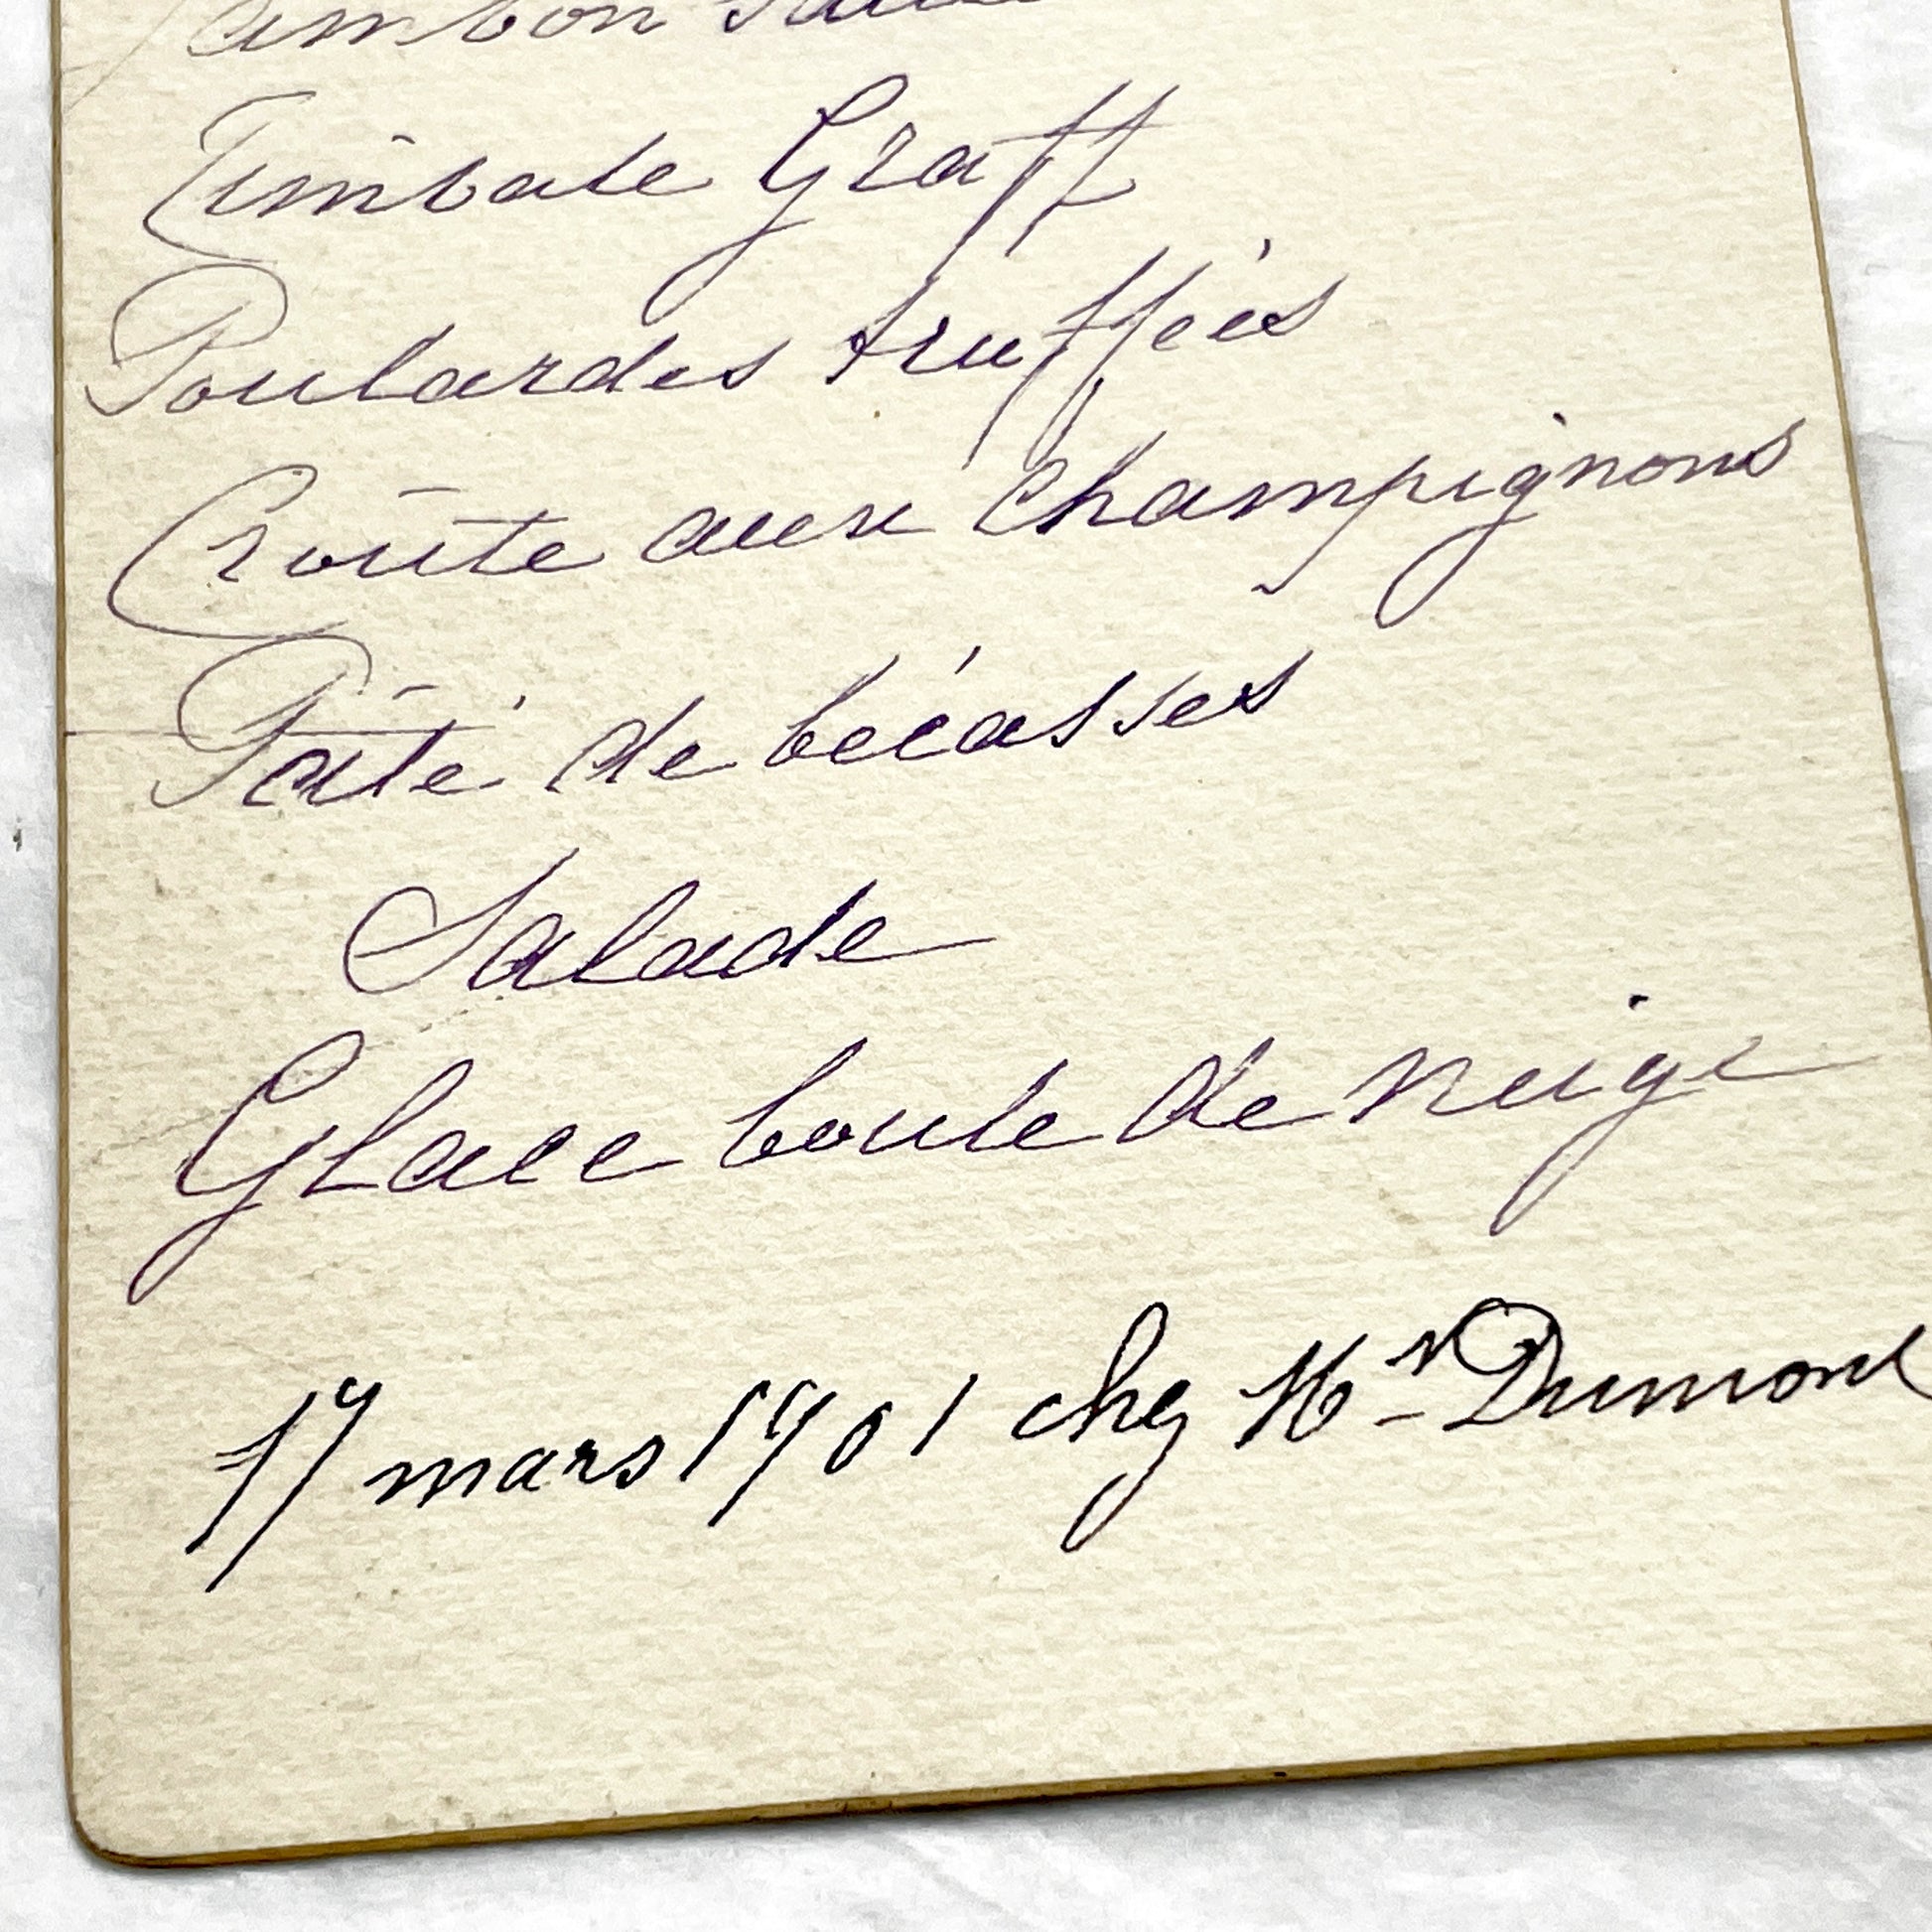 Jambon
Timbale Graff
Poulardes truffées
Croûte aux Champignons
Pâté de bécasses
Salade
Glace boule de neige
17 mars 1901 chez Mr Dumont